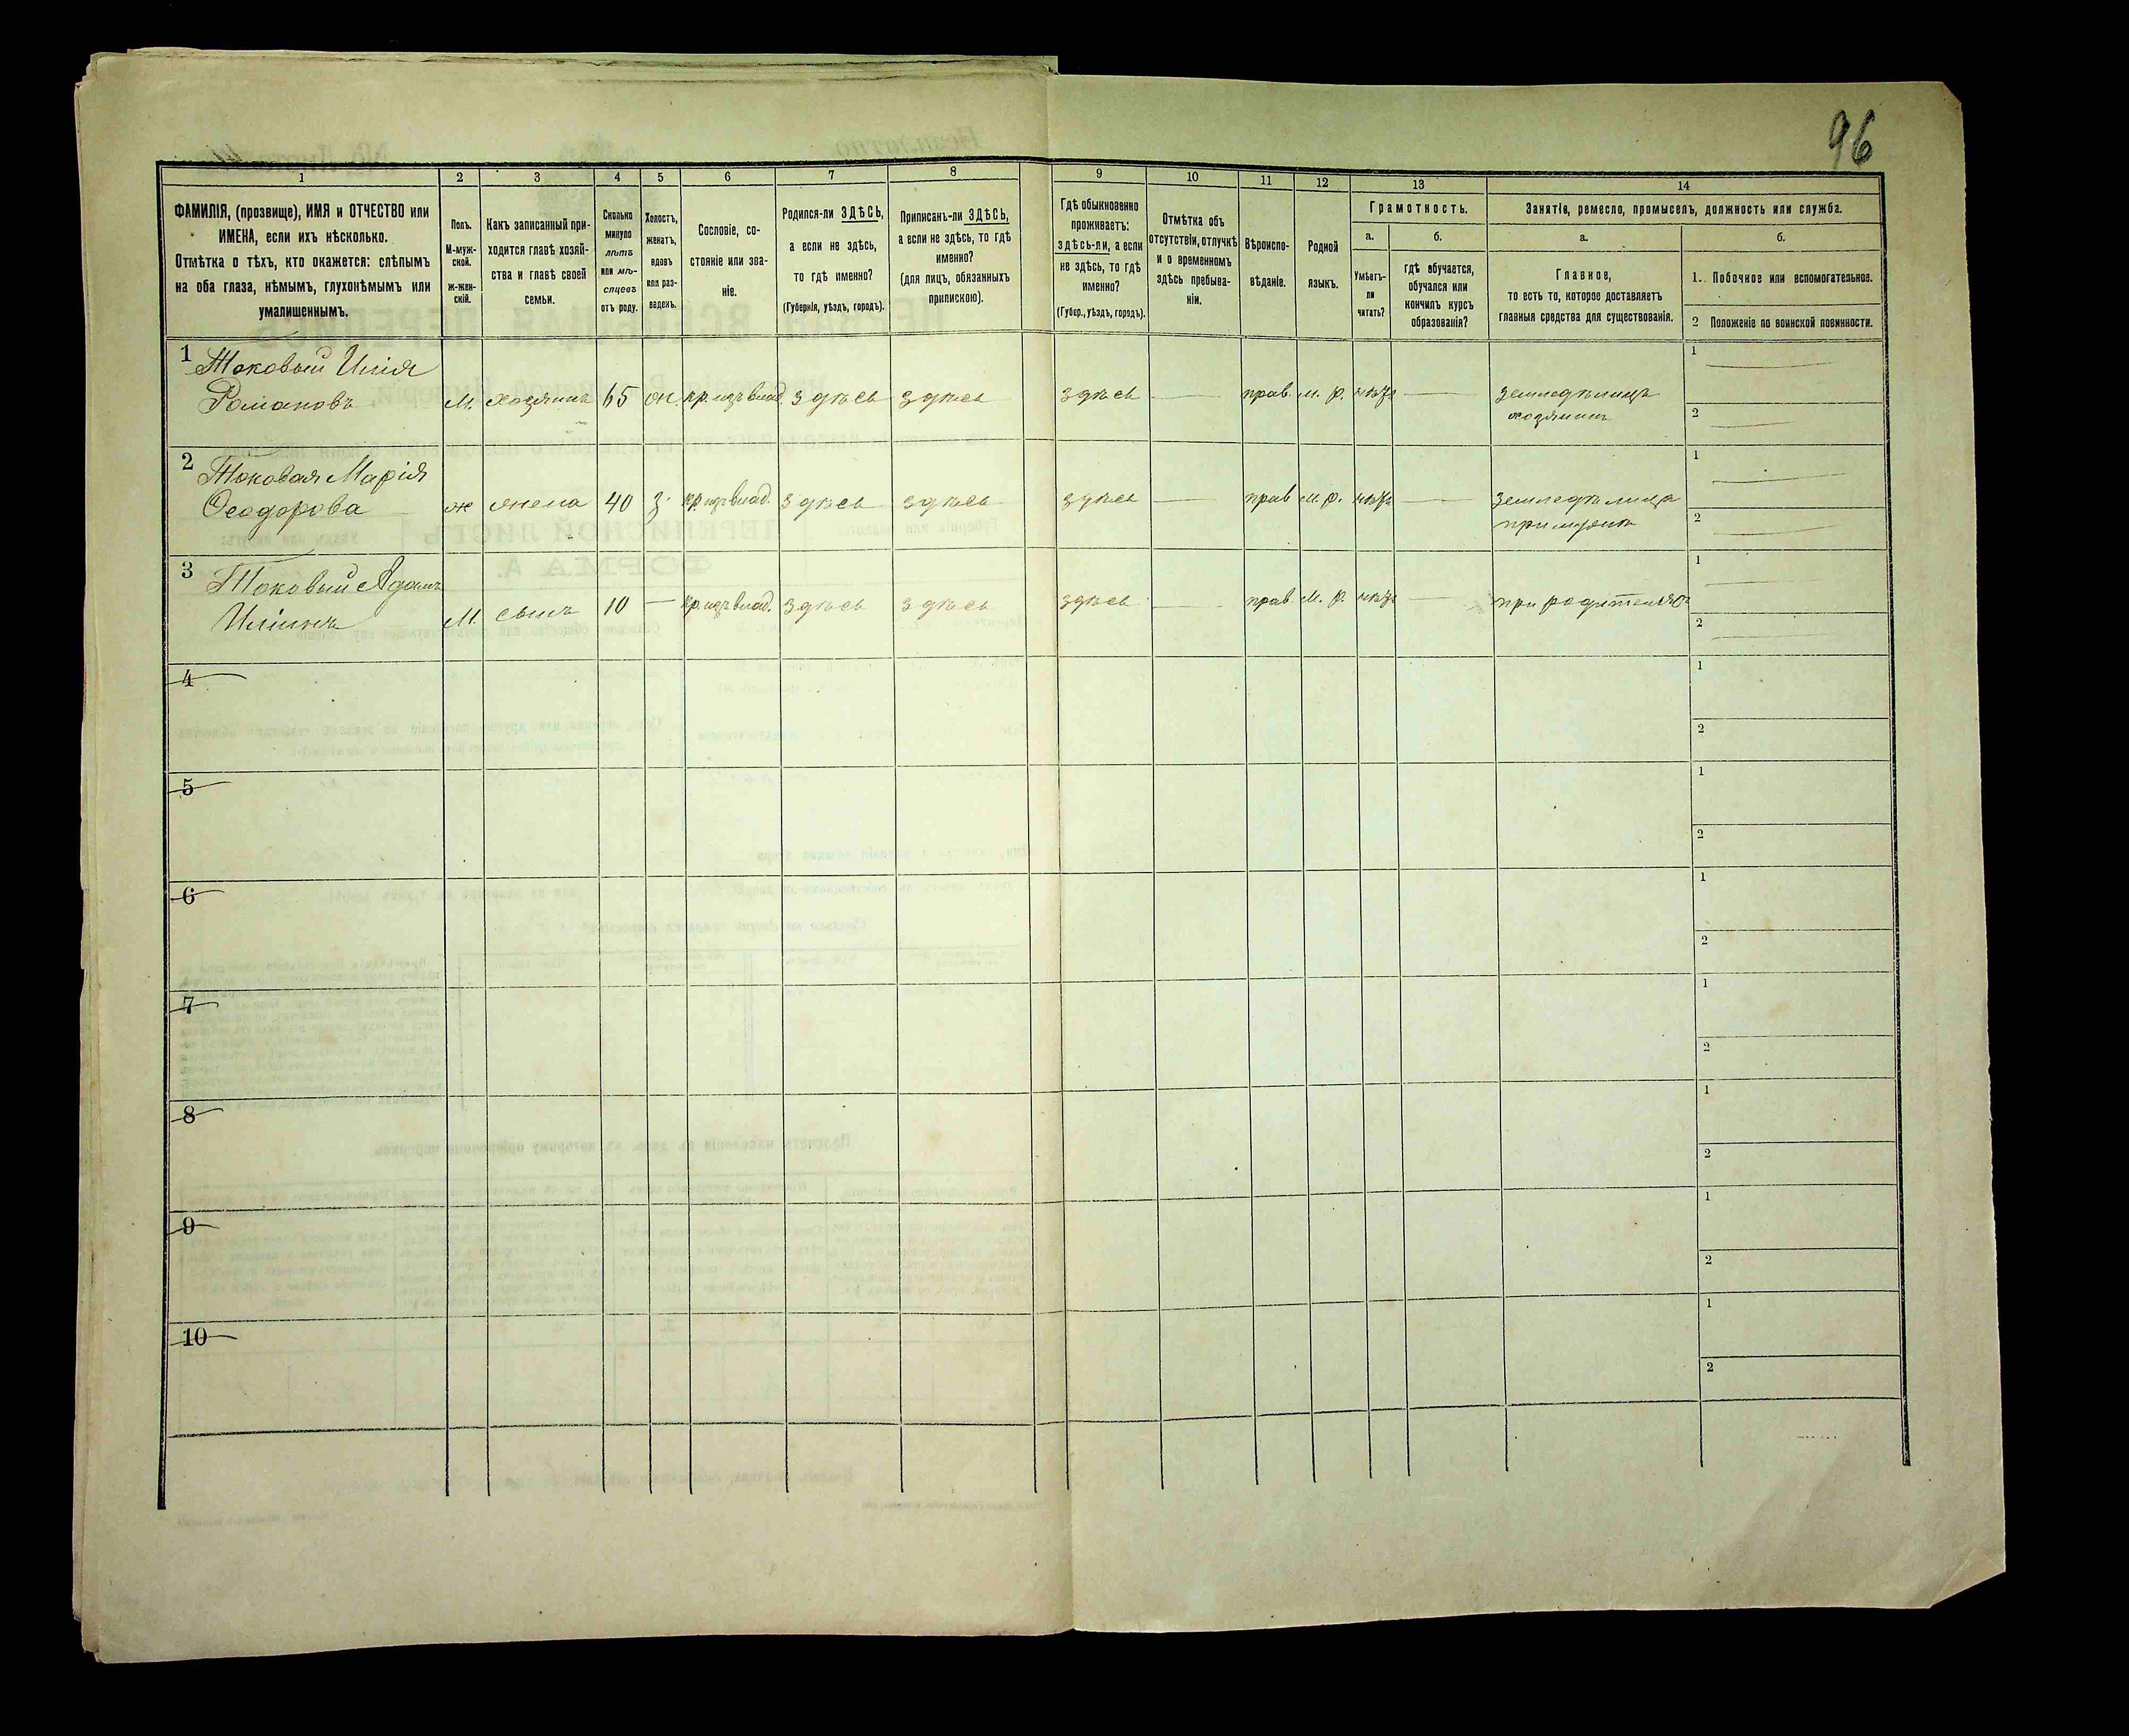 96
1
2
3
4
5
6
7
8
9
10
11
12
13
14
ФАМИЛІЯ, (прозвище), ИМЯ и ОТЧЕСТВО или
ИМЕНА, если ихъ нѣсколько.
Отмѣтка о тѣхъ, кто окажется: слѣпымъ
на оба глаза, нѣмымъ, глухонѣмымъ или
умалишеннымъ.
Полъ.
М-муж-
ской.
ж-жен-
скій.
Какъ записанный при-
ходится главѣ хозяй-
ства и главѣ своей
семьи.
Сколько
минуло
лѣтъ
или мѣ-
сяцевъ
отъ роду.
Холостъ,
женатъ,
вдовъ
или раз-
веденъ.
Сословіе, со-
стояніе или зва-
ніе.
Родился-ли ЗДѢСЬ,
а если не здѣсь,
то гдѣ именно?
(Губернія, уѣздъ, городъ).
Приписанъ-ли ЗДѢСЬ,
а если не здѣсь, то гдѣ
именно?
(для лицъ, обязанныхъ
припискою).
Гдѣ обыкновенно
проживаетъ:
здѣсь-ли, а если
не здѣсь, то гдѣ
именно?
(Губер., уѣздъ, городъ).
Отмѣтка объ
отсутствіи, отлучкѣ
и о временномъ
здѣсь пребыва-
ніи.
Вѣроиспо-
вѣданіе.
Родной
языкъ.
Грамотность.
а.
б.
Умѣетъ-
ли
читать?
гдѣ обучается,
обучался или
кончилъ курсъ
образованія?
Занятіе, ремесло, промыселъ, должность или служба.
а.
б.
Главное,
то есть то, которое доставляетъ
главныя средства для существованія.
1. Побочное или вспомогательное.
2 Положеніе по воинской повинности.
1
Токовый Илія
Романовъ
М. хозяинъ 65 ж. кр. изъ влад. здѣсь здѣсь здѣсь — прав. м. р. нѣтъ — земледѣлецъ
хозяинъ
1
2
2
Токовая Марія
Ѳеодорова
ж жена 40 з. кр. изъ влад. здѣсь здѣсь здѣсь — прав м. р. нѣтъ —
при мужѣ
1
2
3
Токовый Адамъ
Иліинъ
М. сынъ 10 — кр. изъ влад. здѣсь здѣсь здѣсь — прав м. р. нѣтъ — при родителяхъ
1
2
4
1
2
5
1
2
6
1
2
7
1
2
8
1
2
9
1
2
10
1
2